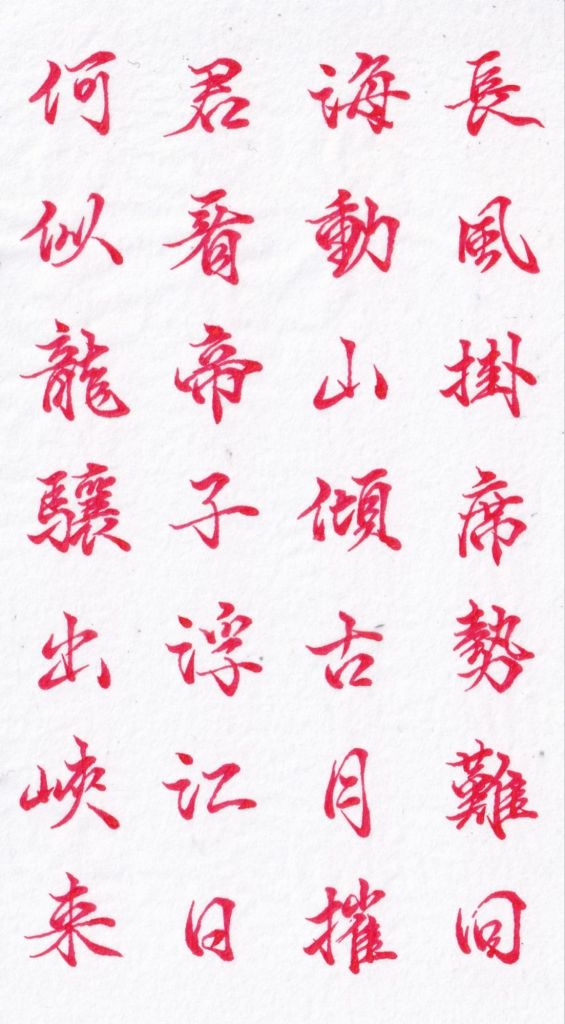 長風掛席勢難回
海動山傾古月摧
君看帝子浮江日
何似龍驤出峽来